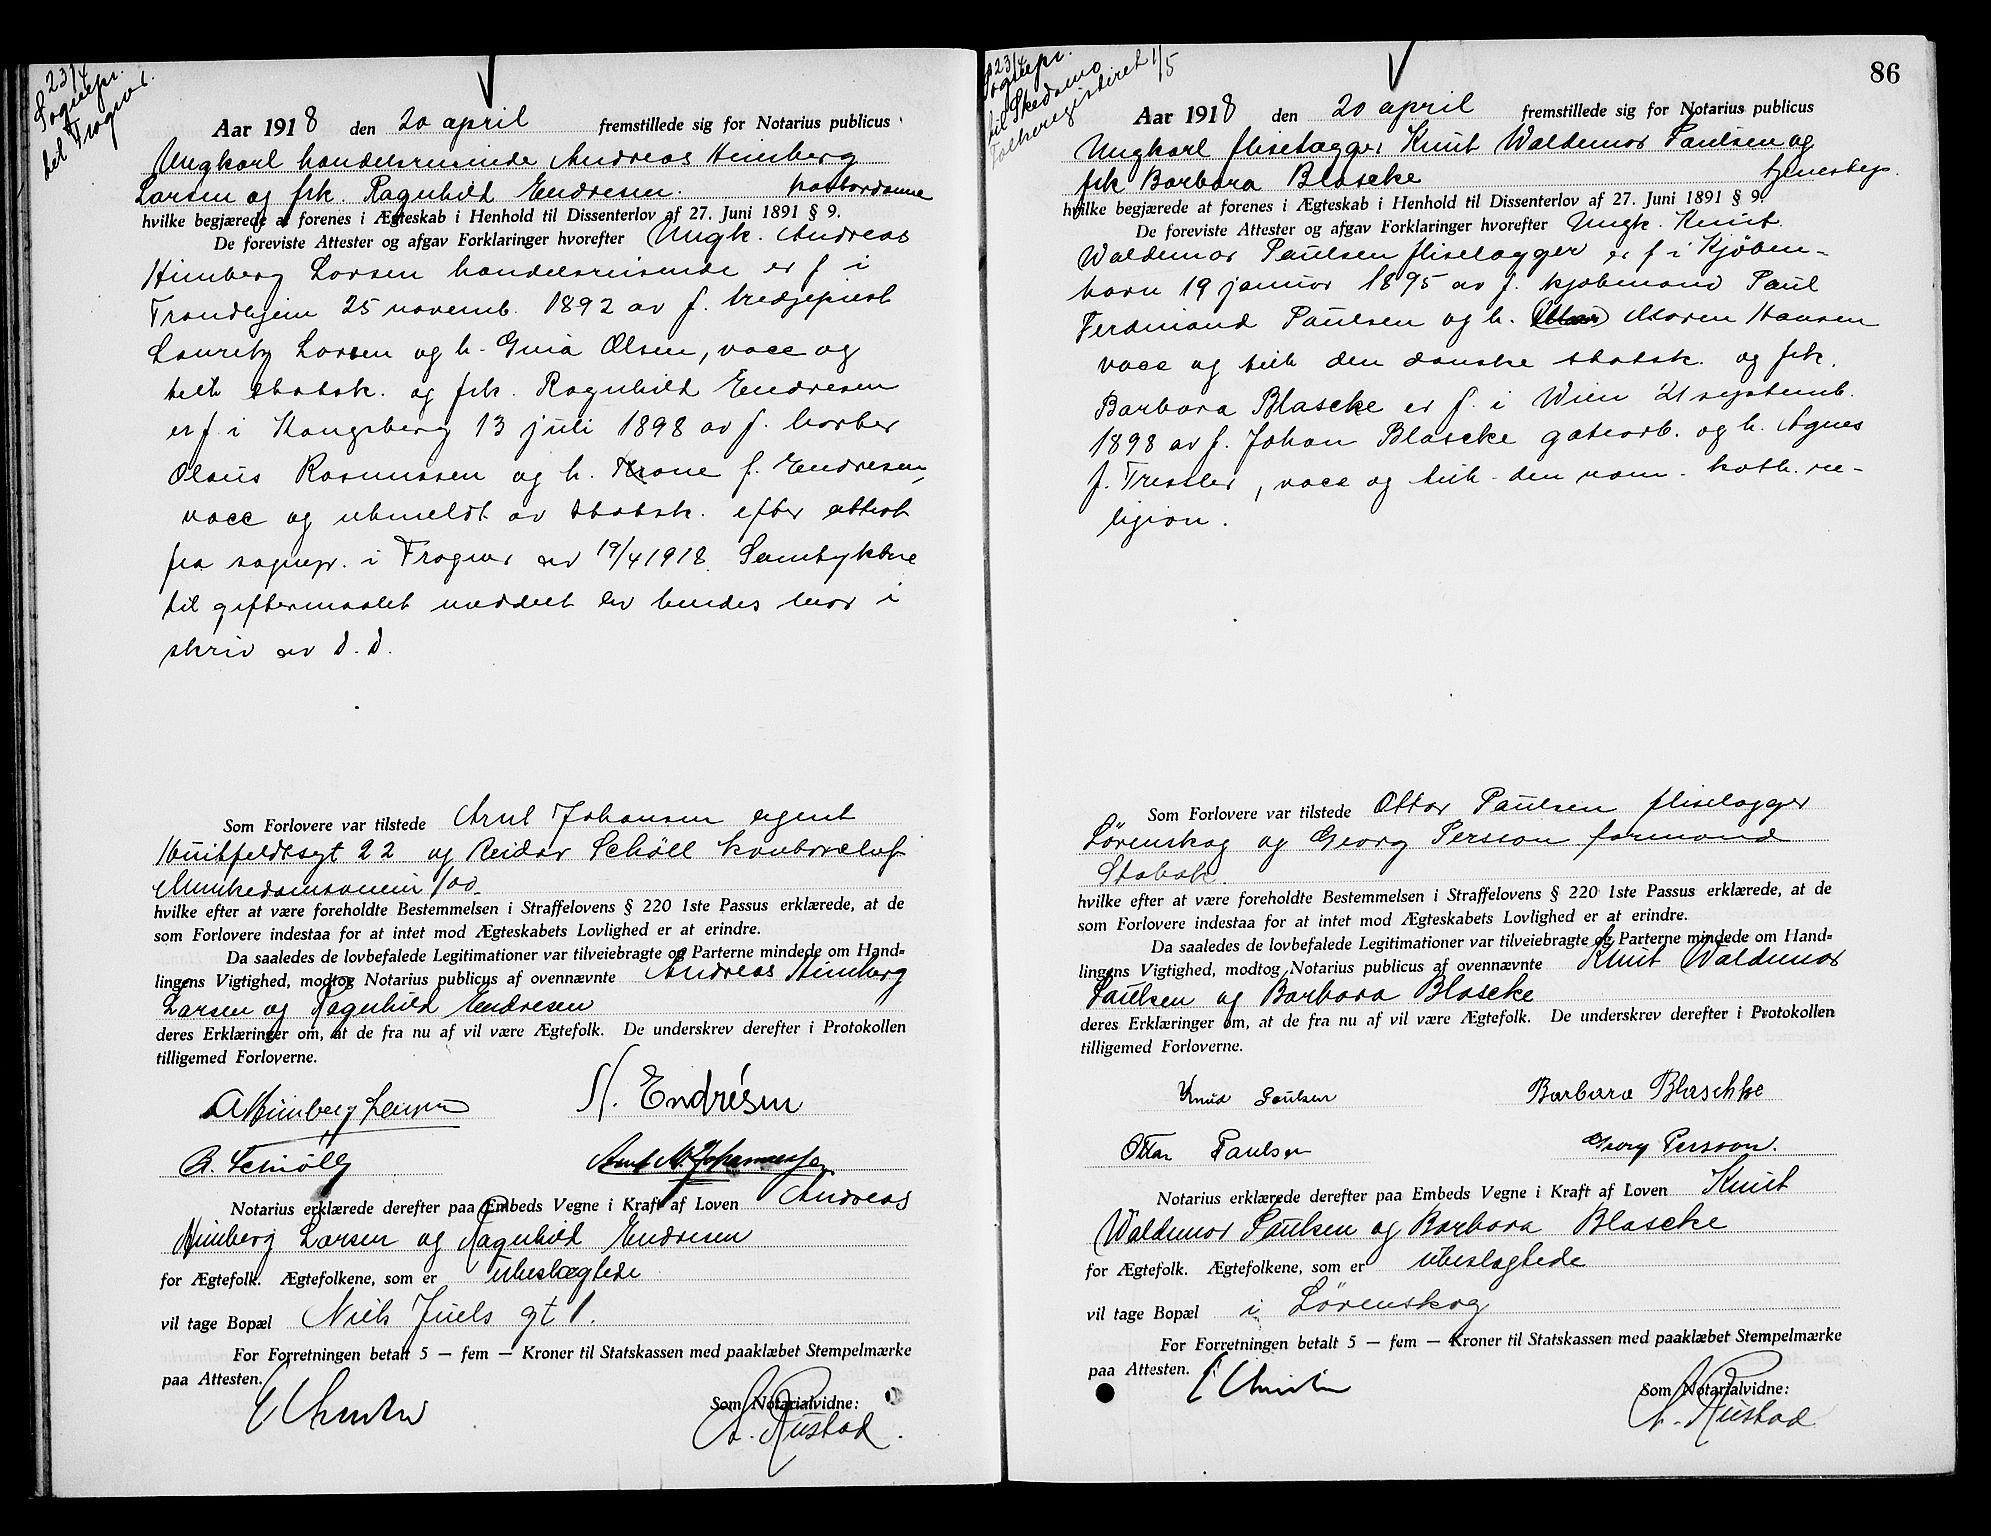 23/4
Sognepr.
tel Frogner.
Aar 1918 den 20 april fremstillede sig for Notarius publicus
Ungkarl handelsreisende Andreas Himberg
Larsen og frk. Ragnhild Endresen. kontordame
hvilke begjærede at forenes i Ægteskab i Henhold til Dissenterlov af 27. Juni 1891 § 9.
De foreviste Attester og afgav Forklaringer hvorefter Ungk. Andreas
Himberg Larsen handelsreisende er f i
Trondhjem 25 novemb. 1892 av f. tredjepiest
Lauritz Larsen og h. Gina Olsen, vacc og
telh statsk. og frk. Ragnhild Endresen
er f. i Kongsberg 13 juli 1898 av f. barber
Olaus Rasmussen og h. Trone f. Endresen,
vacc og utmeldt av statsk. efter attest
fra sognepr. i Frogner av 19/4 1918. Samtykke
til giftermaalet meddelt av hendes mor i
skriv av d. d.
Som Forlovere var tilstede Arnt Johansen agent
Huitfeldtsgt 22 og Reidar Schöll kontorchef
Munkedamsveien 100
hvilke efter at være foreholdte Bestemmelsen i Straffelovens § 220 1ste Passus erklærede, at de
som Forlovere indestaa for at intet mod Ægteskabets Lovlighed er at erindre.
Da saaledes de lovbefalede Legitimationer var tilveiebragte og Parterne mindede om Hand-
lingens Vigtighed, modtog Notarius publicus af ovennævnte Andreas Himberg
Larsen og Ragnhild Endresen
deres Erklæringer om, at de fra nu af vil være Ægtefolk. De underskrev derefter i Protokollen
tilligemed Forloverne.
A Himberg Larsen R. Endrésen
R. Schöll Arnt M. Johannessen
Notarius erklærede derefter paa Embeds Vegne i Kraft af Loven Andreas
Himberg Larsen og Ragnhild Endresen
for Ægtefolk. Ægtefolkene, som er ubeslægtede
vil tage Bopæl Niels Juels gt 1.
For Forretningen betalt 5 — fem — Kroner til Statskassen med paaklæbet Stempelmærke
paa Attesten.
Som Notarialvidne:
A. Rustad.
86
23/4
Sognepr.
til Skedsmo
Folkeregisteret 1/5
Aar 1918 den 20 april fremstillede sig for Notarius publicus
Ungkarl fliselægger Knut Waldemar Paulsen og
frk Barbara Blascke tjenestep.
hvilke begjærede at forenes i Ægteskab i Henhold til Dissenterlov af 27. Juni 1891 § 9.
De foreviste Attester og afgav Forklaringer hvorefter Ungk. Knut
Waldemar Paulsen fliselægger er f i Kjøben-
havn 19 januar 1895 av f. kjøbmand Paul
Ferdinand Paulsen og h. Maren Hansen
vacc og tilh den danske statsk. og frk.
Barbara Blascke er f. i Wien 21 septemb.
1898 av f. Johan Blascke gatearb. og h. Agnes
f. Tressler, vacc og tilh. den rom. kath. re-
ligion.
Som Forlovere var tilstede Ottar Paulsen fliselægger
Lørenskog og Georg Persson formand
Stabæk.
hvilke efter at være foreholdte Bestemmelsen i Straffelovens § 220 1ste Passus erklærede, at de
som Forlovere indestaa for at intet mod Ægteskabets Lovlighed er at erindre.
Da saaledes de lovbefalede Legitimationer var tilveiebragte og Parterne mindede om Hand-
lingens Vigtighed, modtog Notarius publicus af ovennævnte Knut Waldemar
Paulsen og Barbara Blascke
deres Erklæringer om, at de fra nu af vil være Ægtefolk. De underskrev derefter i Protokollen
tilligemed Forloverne.
Knud Paulsen Barbara Blaschke
Ottar Paulsen Georg Persson.
Notarius erklærede derefter paa Embeds Vegne i Kraft af Loven Knut
Waldemar Paulsen og Barbara Blascke
for Ægtefolk. Ægtefolkene, som er ubeslægtede
vil tage Bopæl i Lørenskog
For Forretningen betalt 5 — fem — Kroner til Statskassen med paaklæbet Stempelmærke
paa Attesten.
Som Notarialvidne:
A. Rustad